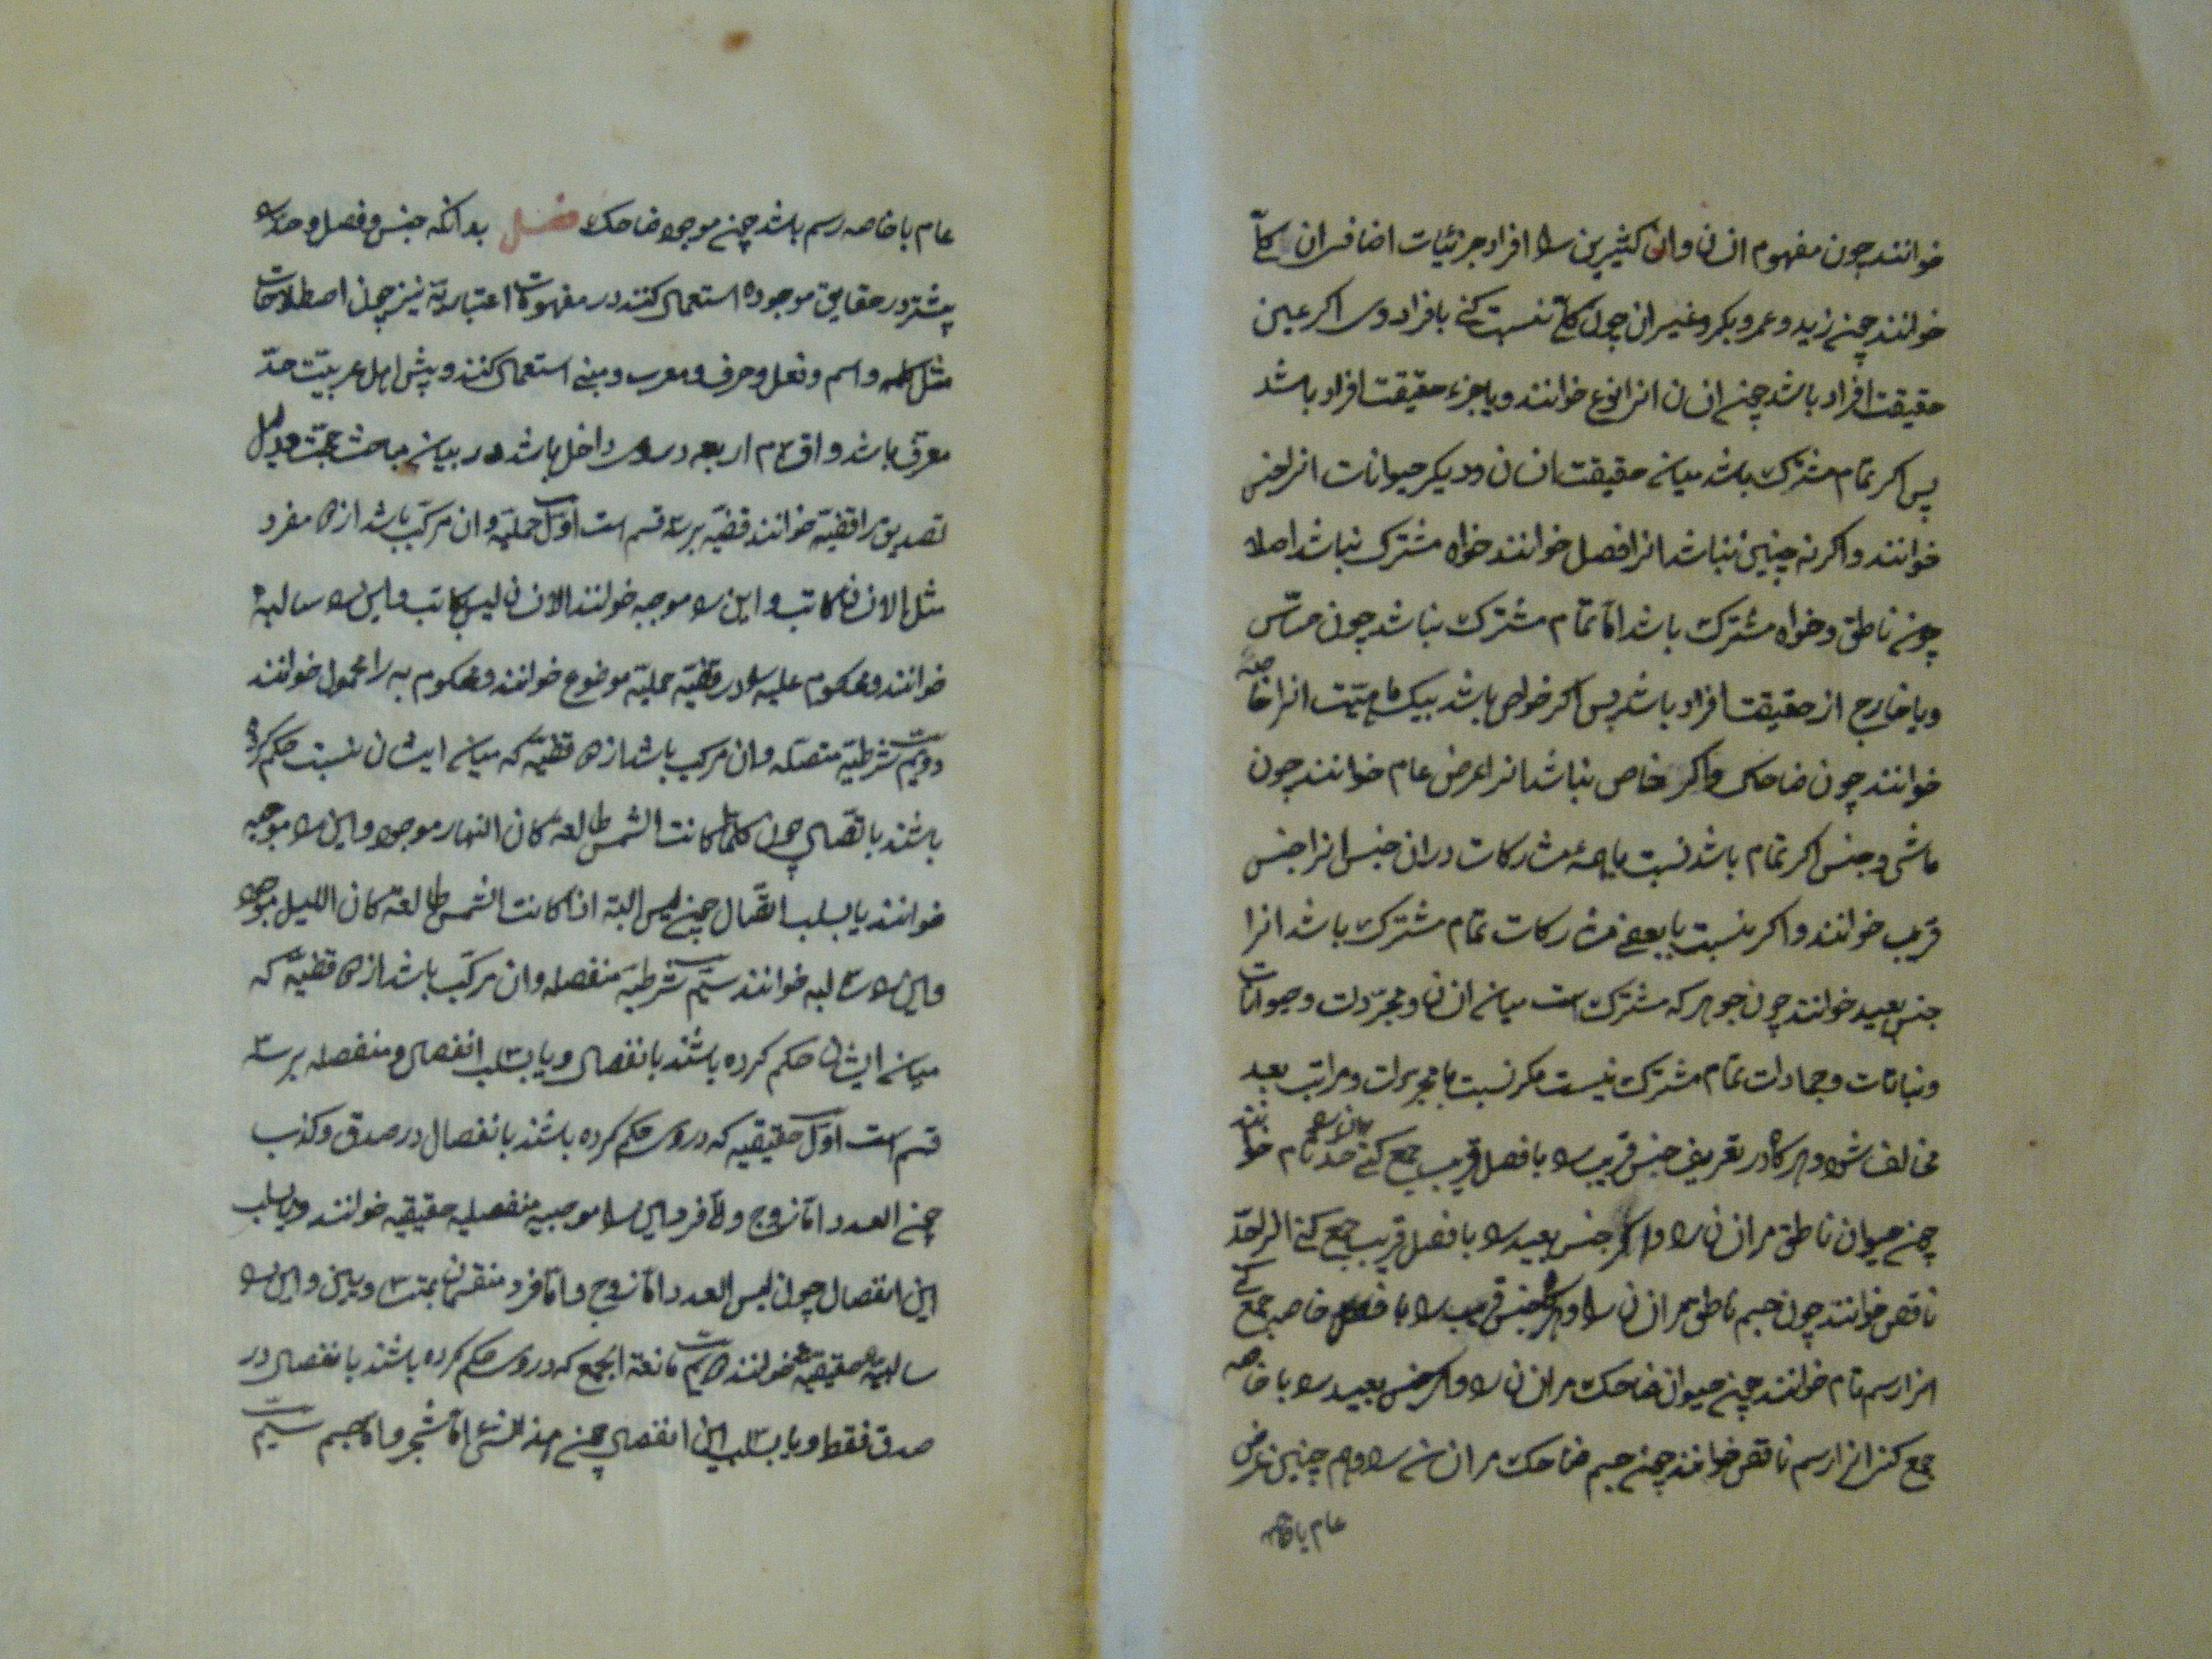 خوانند چون مفهوم انسان و این کثیرین را افراد جزئیات اضافی ان کلّ
خوانند چون زید و عمرو بکر و غیر ان چون کلّ نسبت کنی بافراد وی اکر عین
حقیقت افراد باشد چون انسان انرا نوع خوانند و یا جزء حقیقت افراد باشد
پس اکر تمام مشترک باشد میان حقیقت انسان و دیکر حیوانات انرا جنس
خوانند و اکر نه چنین نباشد انرا فصل خوانند خواه مشترک نباشد اصلا
چون ناطق و خواه مشترک باشد امّا تمام مشترک نباشد چون حسّاس
و یا خارج از حقیقت افراد باشد پس اکر خواص باشد بیک ماهیّت انرا خاصه
خوانند چون ضاحک و اکر خاص نباشد انرا عرض عام خوانند چون
ماشی و جنس اکر تمام باشد نسبت با همهٔ مشارکات در ان جنس انرا جنس
قریب خوانند و اکر نسبت با بعضی مشارکات تمام مشترک باشد انرا
جنس بعید خوانند چون جوهر که مشترک است میان انسان و مجرّدات و حیوانات
و نباتات و جمادات تمام مشترک نیست مکر نسبت با مجردات و مراتب بعید
مخالف شود و هرکاه در تعریف جنس قریب را با فصل قریب جمع کنی حد تام خوانند
چون حیوان ناطق مر انسان را و اکر جنس بعید را با فصل قریب جمع کنی انرا حدّ
ناقص خوانند چون جسم ناطق مر انسان را و اکر جنس قریب را با خاصه جمع کنی
انرا رسم تام خوانند چون حیوان ضاحک مر انسان را و اکر جنس بعید را با خاصه
جمع کنی انرا رسم ناقص خوانند چون جسم ضاحک مر انسان را و هم چنین عرض
عام با خاصه
عام با خاصه رسم باشد چون موجود ضاحک فصل بدانکه جنس و فصل و حد را
پیشتر در حقایق موجوده استعمال کنند در مفهومات اعتباریّه نیز چون اصطلاحات
مثل کلمه و اسم و فعل و حرف و معرب و مبنی استعمال کنند و پیش اهل عربیّت حدّ
معرف باشد و اقسام اربعه در وی داخل باشد در بیان مباحث حجّت
تصدیق را قضیّه خوانند قضیّه بر سه قسم است اوّل حملیّه و ان مرکّب باشد از دو مفرد
مثل الانسان کاتب و این را موجبه خوانند الانسان لیس بکاتب و این را سالبه
خوانند و محکوم علیه را در قضیّه حملیّه موضوع خوانند و محکوم به را محمول خوانند
دویّم شرطیّه متصله و ان مرکب باشد از دو قضیّه که میان ایشان نسبت حکم کرده
باشند باتّصال چون کلما کانت الشمس طالعة کان النهار موجود و این را موجبه
خوانند یا بسلب اتّصال چون لیس البتة اذا کانت الشمس طالعة کان اللیل موجود
و این را سالبه خوانند سیّم شرطیّه منفصله و ان مرکّب باشد از دو قضیّه که
میان ایشان حکم کرده باشند بانفصال و یا بسلب انفصال و منفصله بر سه
قسم است اوّل حقیقیه که در وی حکم کرده باشند بانفصال در صدق و کذب
چون العدد امّا زوج و امّا فرد و این را موجبه منفصله حقیقیه خوانند و یا بسلب
این انفصال چون لیس العدد امّا زوج و امّا فرد منقسم بمتساویین و این را
سالبهٔ حقیقیّه خوانند دویّم مانعة الجمع که در وی حکم کرده باشند بانفصال در
صدق فقط و یا بسلب این انفصال چون هذا الشئ امّا شجر و امّا حجر سیّم